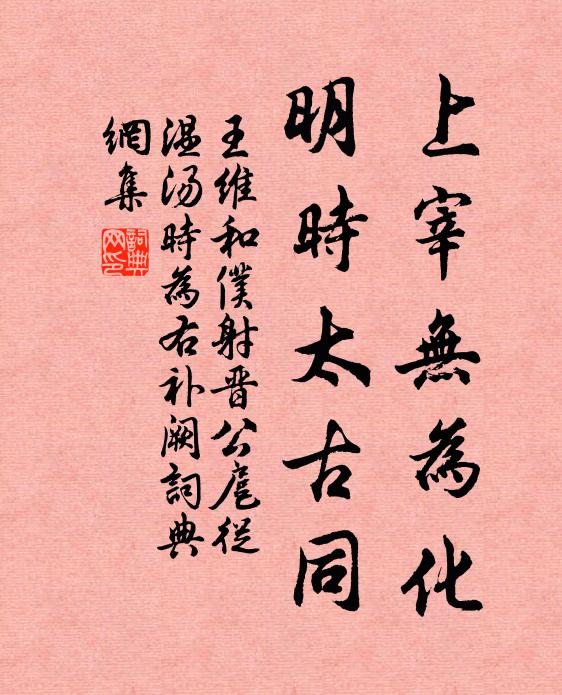 上宰無為化
明時太古同
王維和僕射晋公扈從
温湯時為右补阙詞典
網集
詞典网印